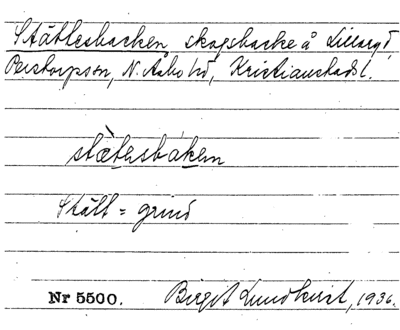 Stättesbacken, skogsbacke å Lillaryd
Perstorpssn, N. Åsbo hd, Kristianstads l.
stætesbáken
Stätt = grind
Nr 5500. Birgit Lundkvist, 1936.